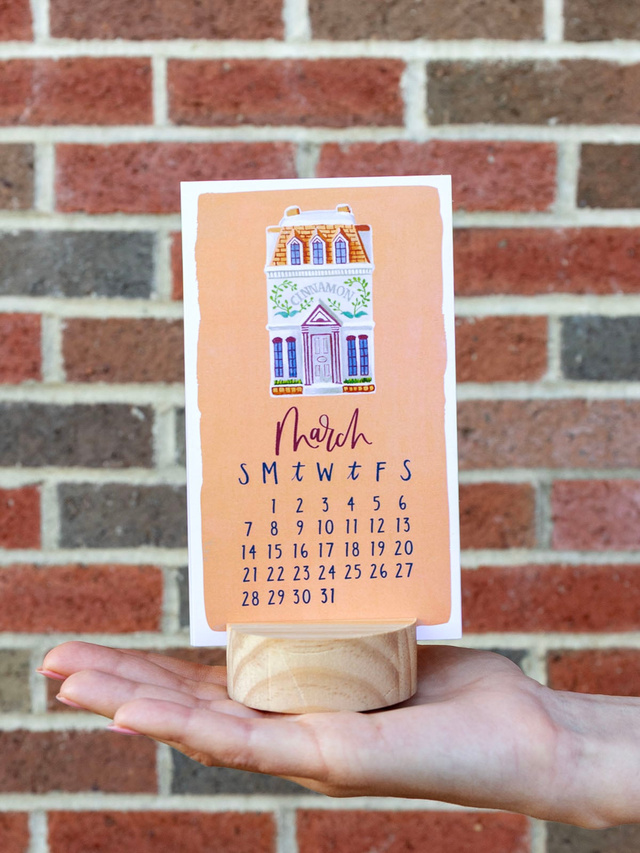 CINNAMON
March
S M t W t F S
1 2 3 4 5 6
7 8 9 10 11 12 13
14 15 16 17 18 19 20
21 22 23 24 25 26 27
28 29 30 31